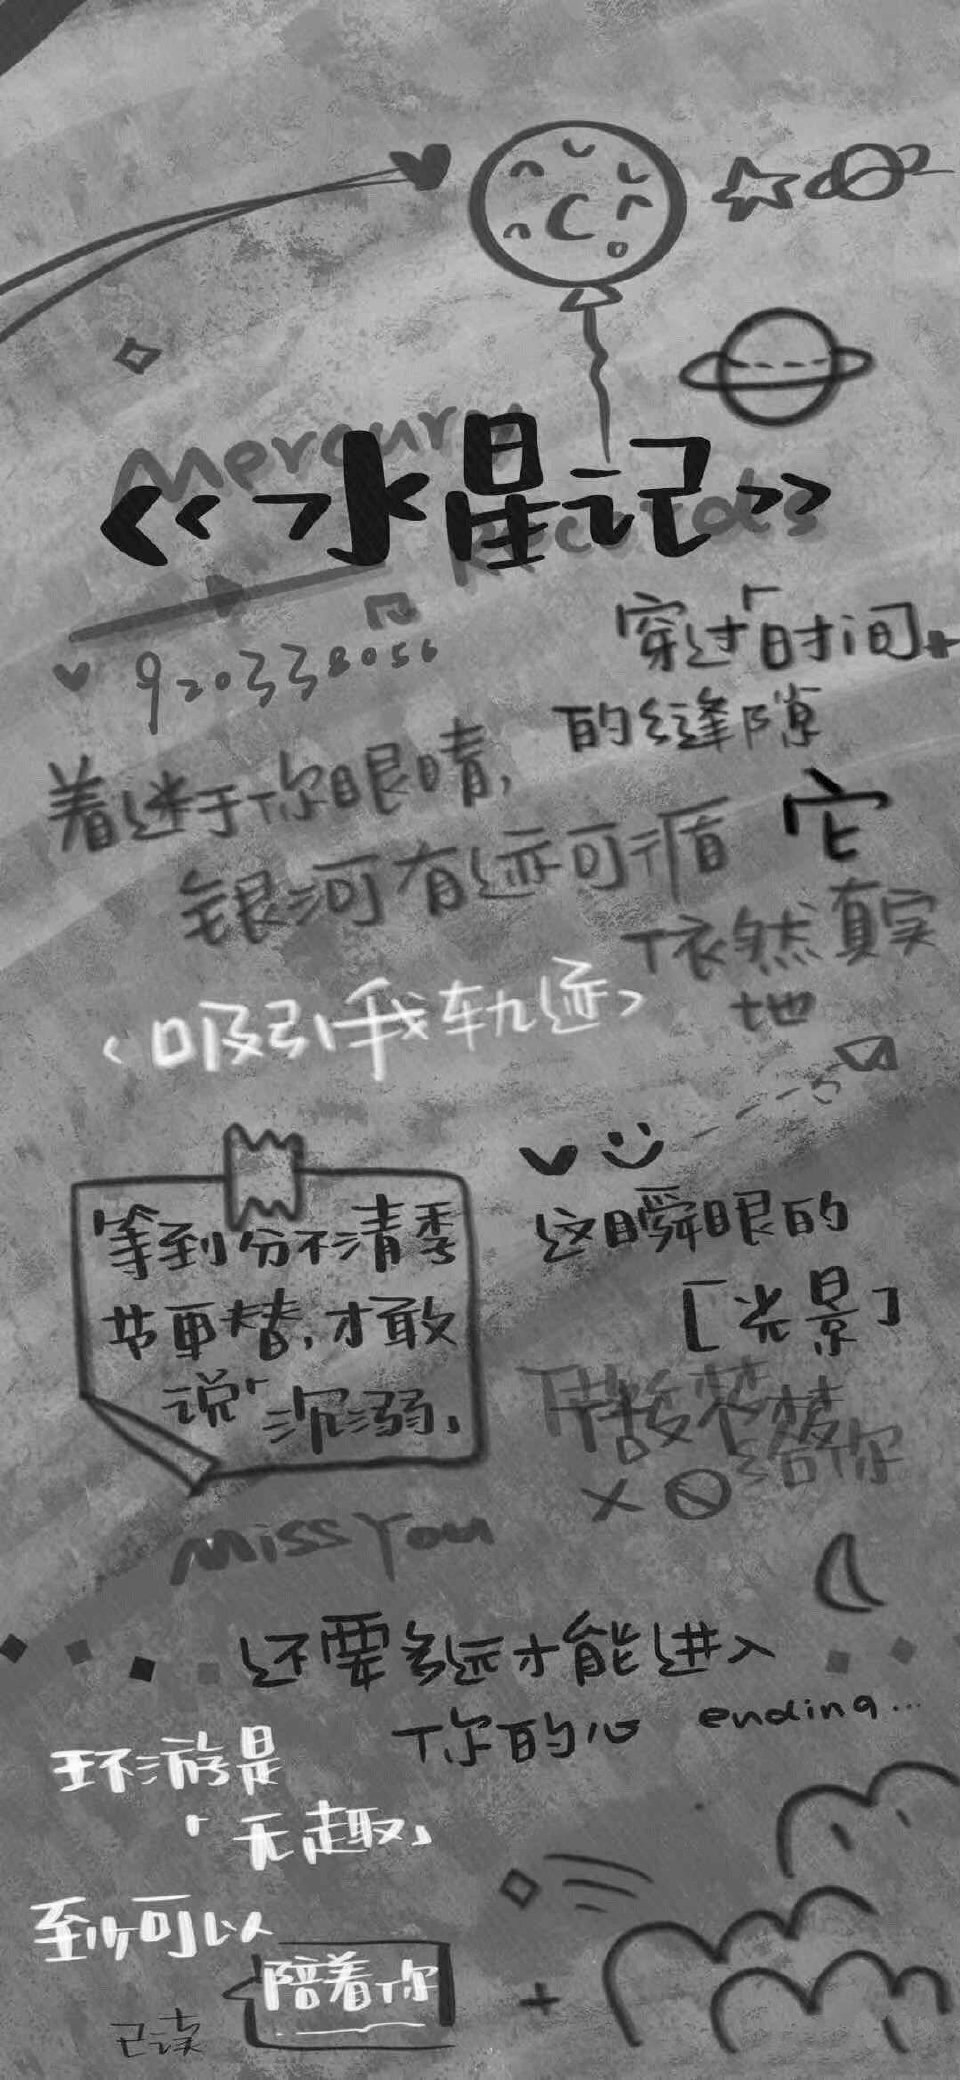 Mercury
《水星记》
Records
920338056
穿过「时间」
的缝隙
着迷于你眼睛,
银河有迹可循
它
依然真实
地
<吸引我轨迹>
等到分不清季
节更替,才敢
说「沉溺」
这瞬眼的
[光景]
给你
Miss You
还要多远才能进入
你的心 ending...
环游是
「无趣」
至少可以
陪着你
已读